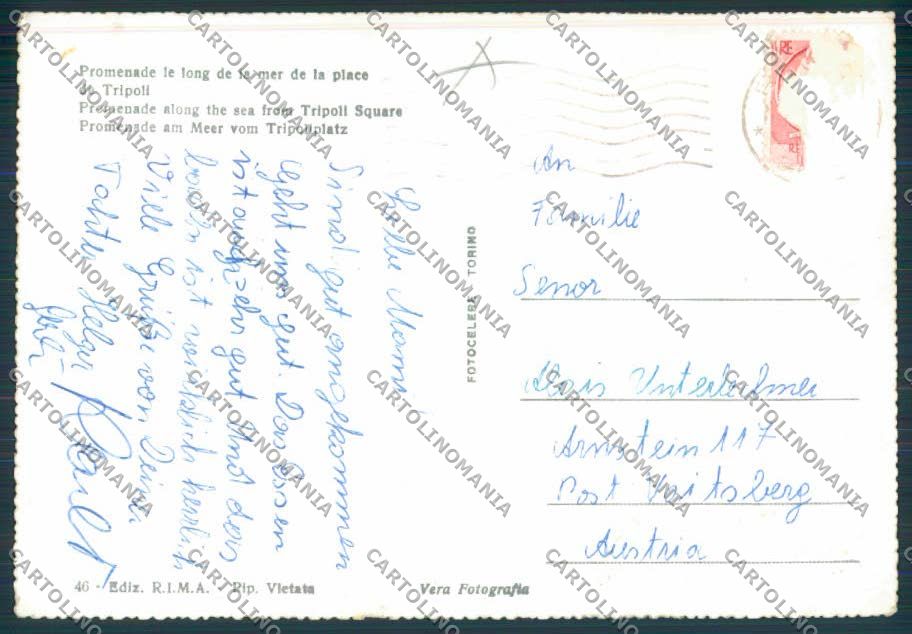 Promenade le long de la mer de la place
de Tripoli
Promenade along the sea from Tripoli Square
Promenade am Meer vom Tripoliplatz
Liebe Mami!
Sind gut angekommen
Geht uns gut. Das Essen
ist auch sehr gut und das
baden ist wirklich herrlich
Viele Grüße von Deiner
Tochter Helga
FOTOCELERE TORINO
An
Familie
Senor
Alois
Arnstein 117
Post Waitsberg
Austria
RE
RE
46 - Ediz. R.I.M.A. - Rip. Vietata
Vera Fotografia
CARTOLINOMANIA